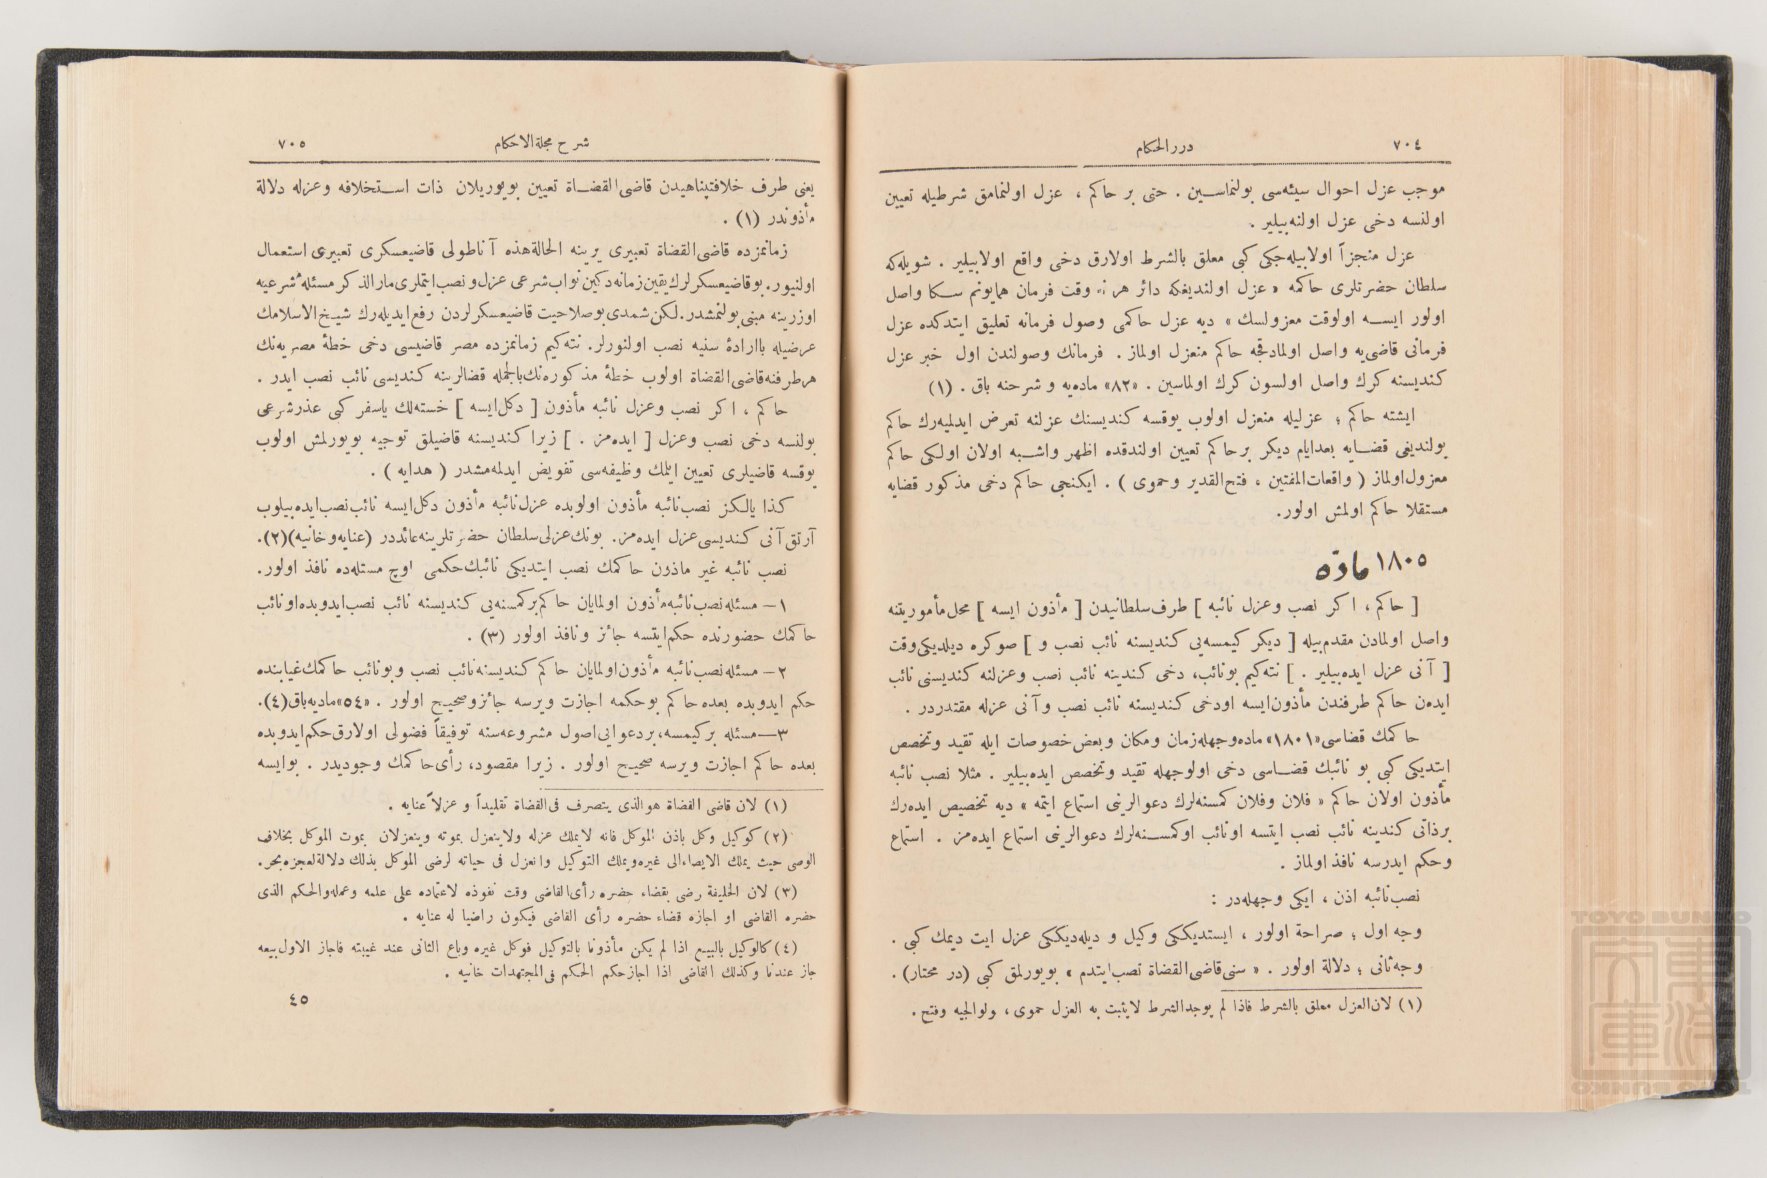 ٧٠٤
درر الحكام
موجب عزل احوال سيئه‌سى بولنماسين . حتى بر حاكم ، عزل اولنمامق شرطيله تعيين
اولنسه دخى عزل اولنه‌بيلير .
عزل منجزاً اولابيله‌جكى كبى معلق بالشرط اولارق دخى واقع اولابيلير . شويله‌كه
سلطان حضرتلرى حاكمه « عزل اولنديغكه دائر هر نه وقت فرمان همايونم سكا واصل
اولور ايسه اولوقت معزولسك » ديه عزل حاكمى وصول فرمانه تعليق ايتدكده عزل
فرمانى قاضى‌يه واصل اولمادقجه حاكم منعزل اولماز . فرمانك وصولندن اول خبر عزل
كنديسنه كرك واصل اولسون كرك اولماسين . «٨٢» ماده‌يه و شرحنه باق . (١)
ايشته حاكم ؛ عزليله منعزل اولوب يوقسه كنديسنك عزلنه تعرض ايدلميه‌رك حاكم
بولنديغى قضايه بعدايام ديكر برحاكم تعيين اولندقده اظهر واشبه اولان اولكى حاكم
معزول‌اولماز ( واقعات‌المفتين ، فتح‌القدير وحموى ) . ايكنجى حاكم دخى مذكور قضايه
مستقلا حاكم اولمش اولور.
١٨٠٥ مادّه
[ حاكم ، اكر نصب وعزل نائبه ] طرف‌سلطانيدن [ مأذون ايسه ] محل‌مأموريتنه
واصل اولمادن مقدم‌بيله [ ديكر كيمسه‌يى كنديسنه نائب نصب و ] صوكره ديلديكى‌وقت
[ آنى عزل ايده‌بيلير . ] نته‌كيم بونائب، دخى كندينه نائب نصب وعزلنه كنديسنى نائب
ايده‌ن حاكم طرفندن مأذون‌ايسه اودخى كنديسنه نائب نصب وآنى عزله مقتدردر .
حاكمك قضاسى «١٨٠١» ماده‌وجهله‌زمان ومكان وبعض‌خصوصات ايله تقيد وتخصص
ايتديكى كبى بو نائبك قضاسى دخى اولوجهله تقيد وتخصص ايده‌بيلير . مثلا نصب نائبه
مأذون اولان حاكم « فلان وفلان كمسنه‌لرك دعوالرينى استماع ايتمه » ديه تخصيص ايده‌رك
برذاتى كندينه نائب نصب ايتسه اونائب اوكمسنه‌لرك دعوالرينى استماع ايده‌مز . استماع
وحكم ايدرسه نافذ اولماز .
نصب‌نائبه اذن ، ايكى وجهله‌در :
وجه اول ؛ صراحة اولور ، ايستديككى وكيل و ديله‌ديككى عزل ايت ديمك كبى .
وجه‌ثانى ؛ دلالة اولور . « سنى‌قاضى‌القضاة نصب‌ايتدم » بويورلمق كبى (در مختار) .
(١) لان‌العزل معلق بالشرط فاذا لم يوجدالشرط لايثبت به العزل حموى ، ولوالجيه وفتح .
شرح مجلة‌الاحكام
٧٠٥
يعنى طرف خلافتپناهيدن قاضى‌القضاة تعيين بويوريلان ذات استخلافه وعزله دلالة
مأذوندر (١) .
زمانمزده قاضى‌القضاة تعبيرى يرينه الحالةهذه آناطولى قاضيعسكرى تعبيرى استعمال
اولنيور. بوقاضيعسكرلرك‌يقين‌زمانه‌دكين‌نواب‌شرعى عزل‌ونصب‌ايتملرى‌مارالذكر مسئلهٔ‌شرعيه
اوزرينه مبنى‌بولنمشدر.لكن‌شمدى‌بوصلاحيت قاضيعسكرلردن رفع‌ايديله‌رك شيخ‌الاسلامك
عرضيله باارادهٔ سنيه نصب اولنورلر. نته‌كيم زمانمزده مصر قاضيسى دخى خطهٔ مصريه‌نك
هرطرفنه‌قاضى‌القضاة اولوب خطهٔ مذكوره‌نك‌بالجمله قضالرينه كنديسى نائب نصب ايدر .
حاكم ، اكر نصب وعزل نائبه مأذون [ دكل‌ايسه ] خسته‌لك ياسفر كبى عذرشرعى
بولنسه دخى نصب وعزل [ ايده‌مز . ] زيرا كنديسنه قاضيلق توجيه بويورلمش اولوب
يوقسه قاضيلرى تعيين ايتمك وظيفه‌سى تفويض ايدلمه‌مشدر ( هدايه ) .
كذا يالكز نصب‌نائبه مأذون اولوبده عزل‌نائبه مأذون دكل‌ايسه نائب‌نصب‌ايده‌بيلوب
آرتق‌آنى كنديسى‌عزل ايده‌مز. بونك‌عزلى‌سلطان حضرتلرينه‌عائددر (عنايه‌وخانيه)(٢).
نصب نائبه غير مأذون حاكمك نصب ايتديكى نائبك‌حكمى اوچ مسئله‌ده نافذ اولور.
١ – مسئله‌نصب‌نائبه‌مأذون اولمايان حاكم‌بركمسنه‌يى كنديسنه نائب نصب‌ايدوبده‌اونائب
حاكمك حضورنده حكم‌ايتسه جائز ونافذ اولور (٣) .
٢ – مسئله‌نصب‌نائبه مأذون‌اولمايان حاكم كنديسنه‌نائب نصب وبونائب حاكمك‌غيابنده
حكم ايدوبده بعده‌حاكم بوحكمه اجازت ويرسه جائزوصحيح اولور . «٥٤»ماديه‌باق(٤).
٣ — مسئله بركيمسه،بردعوايى‌اصول مشروعه‌سنه توفيقاً فضولى اولارق‌حكم‌ايدوبده
بعده حاكم اجازت ويرسه صحيح اولور . زيرا مقصود، رأى‌حاكمك وجوديدر . بوايسه
(١) لان قاضى القضاة هوالذى يتصرف فى‌القضاة تقليداً وعزلاً عنايه .
(٢) كوكيل وكل باذن الموكل فانه لايملك عزله ولاينعزل بموته وينعزلان بموت الموكل بخلاف
الوصى حيث يملك الايصاءالى غيره‌ويملك التوكيل وانعزل فى حياته لرضى الموكل بذلك دلالةلعجزه‌بحر.
(٣) لان الخليفة رضى بقضاء حضره رأى‌القاضى وقت نفوذه لاعتماده على علمه وعمله‌والحكم الذى
حضره القاضى او اجازه قضاء حضره رأى القاضى فيكون راضيا له عنايه .
(٤) كالوكيل بالبيع اذا لم يكن مأذونا بالتوكيل فوكل غيره وباع الثانى عند غيبته فاجاز الاول‌بيعه
جاز عندنا وكذلك القاضى اذا اجازحكم الحكم فى‌المجتهدات خانيه .
٤٥
TOYO BUNKO
東洋文庫